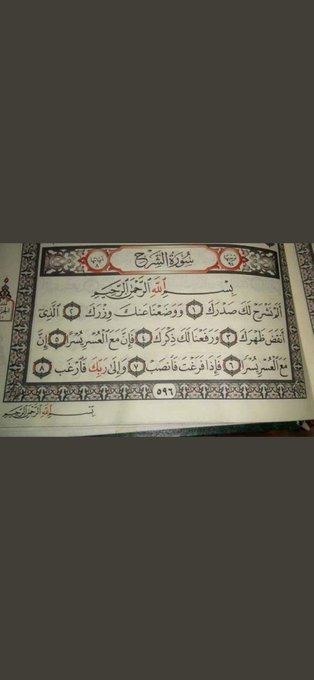 سُورَةُ الشَّرْحِ
بِسْمِ اللَّهِ الرَّحْمَٰنِ الرَّحِيمِ
أَلَمْ نَشْرَحْ لَكَ صَدْرَكَ ١ وَوَضَعْنَا عَنكَ وِزْرَكَ ٢ الَّذِي
أَنقَضَ ظَهْرَكَ ٣ وَرَفَعْنَا لَكَ ذِكْرَكَ ٤ فَإِنَّ مَعَ الْعُسْرِ يُسْرًا ٥ إِنَّ
مَعَ الْعُسْرِ يُسْرًا ٦ فَإِذَا فَرَغْتَ فَانصَبْ ٧ وَإِلَىٰ رَبِّكَ فَارْغَب ٨
٥٩٦
بِسْمِ اللَّهِ الرَّحْمَٰنِ الرَّحِيمِ